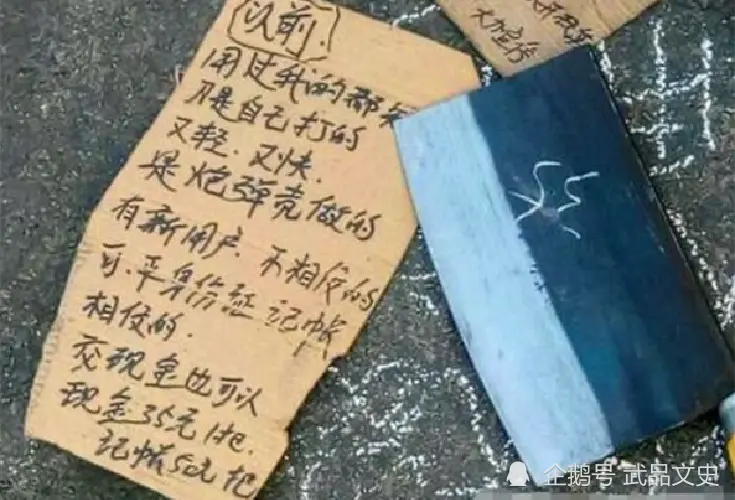 以前.
用过我的都知
刀是自己打的
又轻.又快.
是炮弹壳做的
有新用户.不相信的
可.平身份证记帐
相信的.
交现金也可以
现金35元1把.
记帐50元把
大力宣传
企鹅号 武品文史